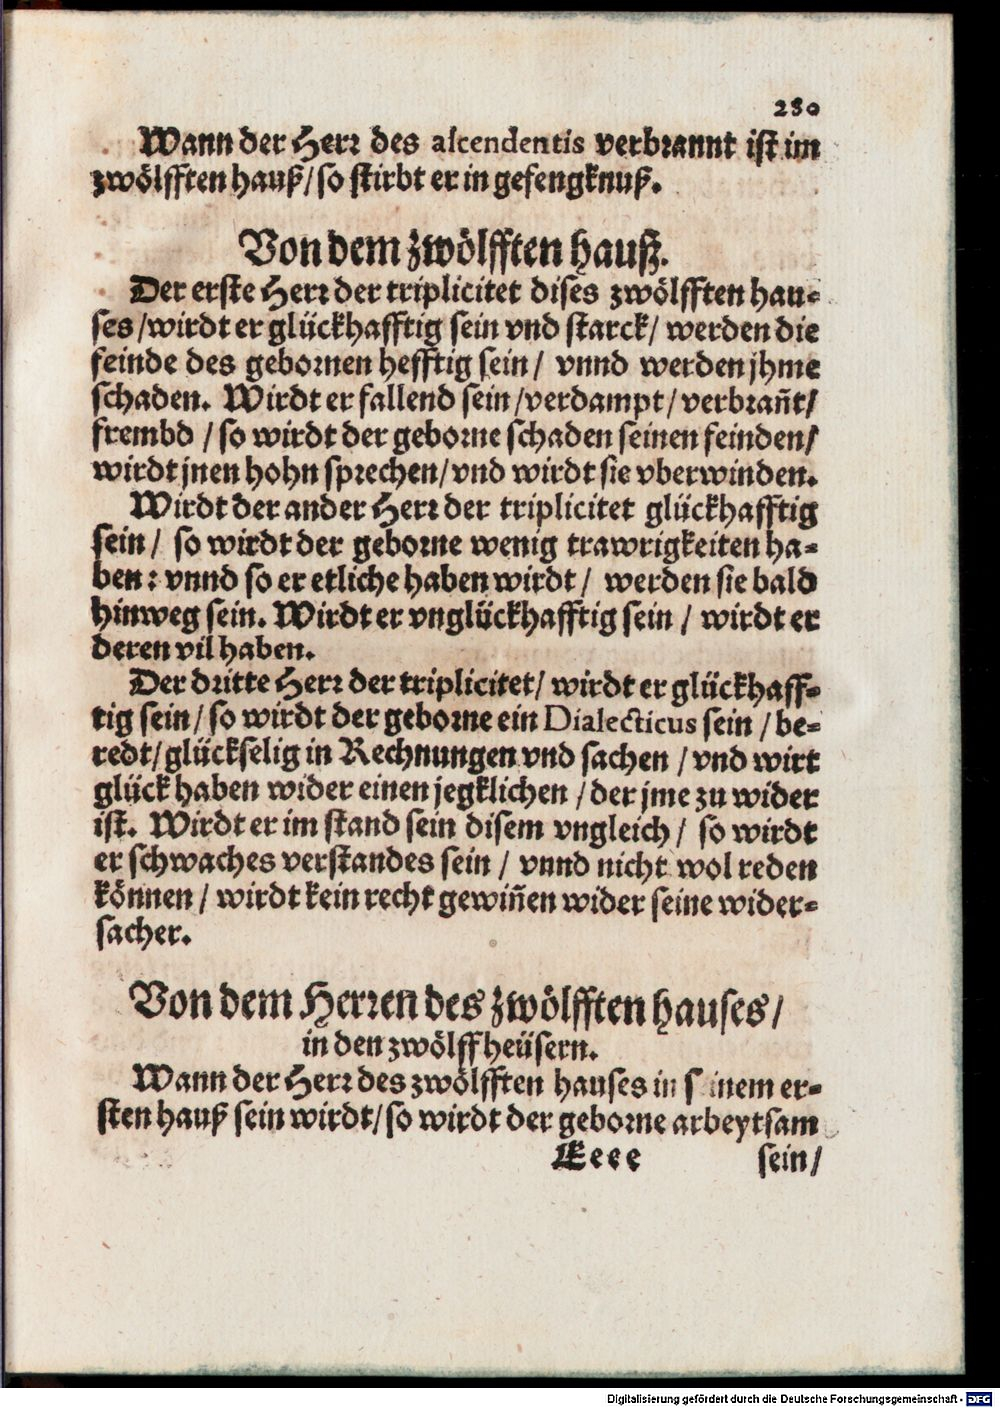 280
Wann der Herr des ascendentis verbrannt ist im
zwölfften hauß/so stirbt er in gefengknuß.
Von dem zwölfften hauß.
Der erste Herr der triplicitet dises zwölfften hau-
ses/wirdt er glückhafftig sein vnd starck/ werden die
feinde des gebornen hefftig sein/ vnnd werden jhme
schaden. Wirdt er fallend sein/verdampt/verbrañt/
frembd / so wirdt der geborne schaden seinen feinden/
wirdt jnen hohn sprechen/vnd wirdt sie vberwinden.
Wirdt der ander Herr der triplicitet glückhafftig
sein/ so wirdt der geborne wenig trawrigkeiten ha-
ben: vnnd so er etliche haben wirdt/ werden sie bald
hinweg sein. Wirdt er vnglückhafftig sein / wirdt er
deren vil haben.
Der dritte Herr der triplicitet/ wirdt er glückhaff-
tig sein/so wirdt der geborne ein Dialecticus sein /be-
redt/glückselig in Rechnungen vnd sachen /vnd wirt
glück haben wider einen jegklichen /der jme zu wider
ist. Wirdt er im stand sein disem vngleich/ so wirdt
er schwaches verstandes sein / vnnd nicht wol reden
können / wirdt kein recht gewiñen wider seine wider-
sacher.
Von dem Herren des zwölfften hauses/
in den zwölff heüsern.
Wann der Herr des zwölfften hauses in s inem er-
sten hauß sein wirdt/so wirdt der geborne arbeytsam
Eeee sein/
Digitalisierung gefördert durch die Deutsche Forschungsgemeinschaft - DFG